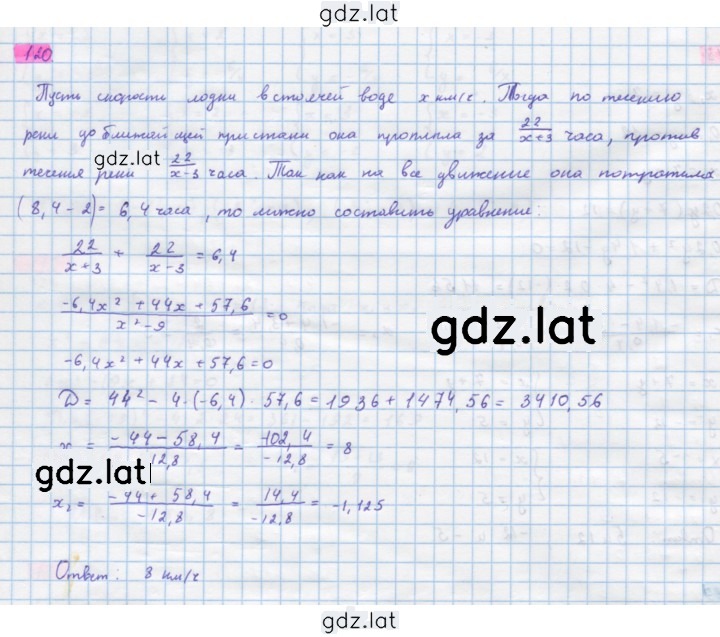 gdz.lat
120
Пусть скорость лодки в стоячей воде x км/ч. Тогда по течению
реки до ближайшей пристани она проплыла за 22/(x+3) часа, против
gdz.lat
течения реки 22/(x-3) часа. Так как на все движение она потратила
(8,4-2)= 6,4 часа, то можно составить уравнение:
22/(x+3) + 22/(x-3) = 6,4
(-6,4x² + 44x + 57,6)/(x²-9) = 0
gdz.lat
-6,4x² + 44x + 57,6 = 0
D = 44² - 4·(-6,4)·57,6 = 1936 + 1474,56 = 3410,56
= (-44-58,4)/12,8 = (-102,4)/(-12,8) = 8
gdz.lat
x₂ = (-44+58,4)/(-12,8) = 14,4/(-12,8) = -1,125
Ответ: 8 км/ч
gdz.lat